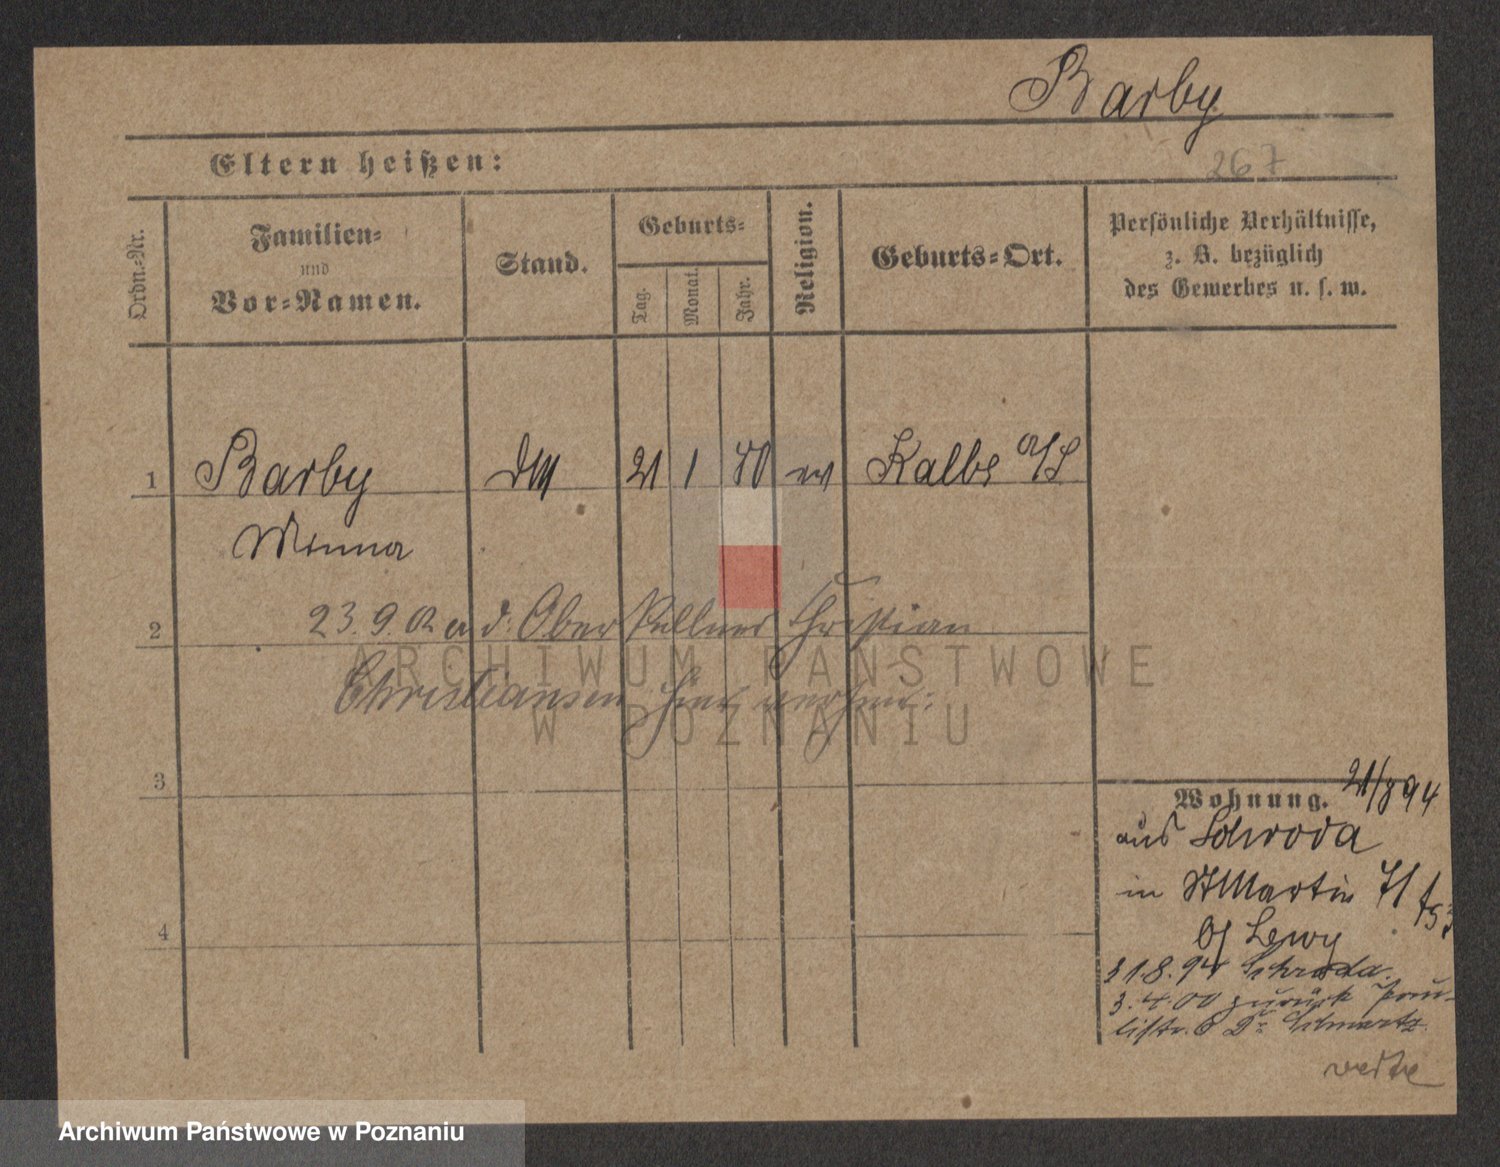 Barby
267
Eltern heißen:
Ordn.-Nr.
Familien-
und
Vor-Namen.
Stand.
Geburts-
Tag.
Monat.
Jahr.
Religion.
Geburts-Ort.
Persönliche Verhältnisse,
z. B. bezüglich
des Gewerbes u. s. w.
1
Barby 21 1 80 ev Kalbe a/S
Minna
2
23.9.02 an d. Ober Kellner Christian
Christiansen hier
ARCHIWUM PAŃSTWOWE
W POZNANIU
3
4
Wohnung. 21/8 94
aus Schroda
in St Martin 71
b/ Lewy
21.8.94 Schroda.
3.4.00 zurück Pau-
listr. 6 Dr. Schwartz
verte
Archiwum Państwowe w Poznaniu